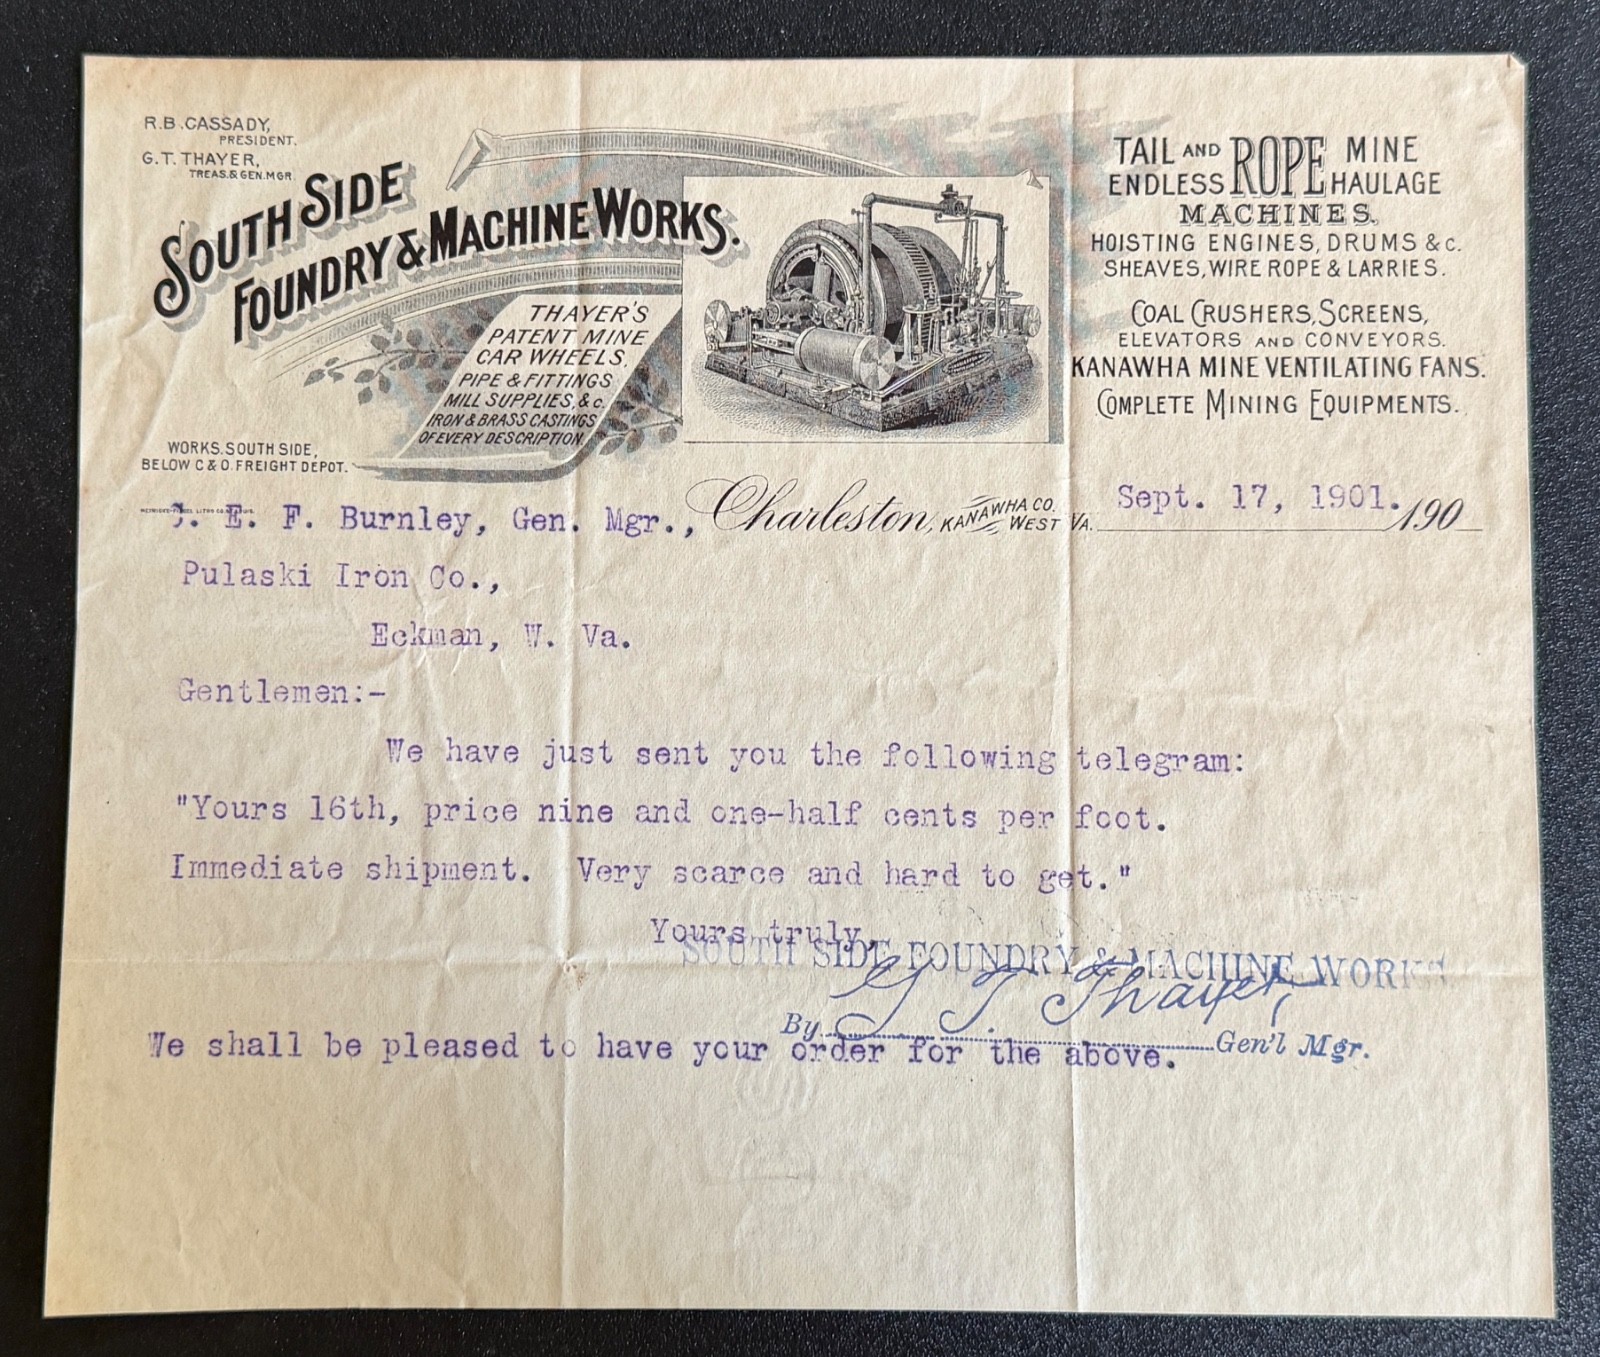 R.B. CASSADY,
PRESIDENT.
G.T. THAYER,
TREAS. & GEN. MGR.
SOUTH SIDE
FOUNDRY & MACHINE WORKS.
THAYER'S
PATENT MINE
CAR WHEELS,
PIPE & FITTINGS
MILL SUPPLIES, & c.
IRON & BRASS CASTINGS
OF EVERY DESCRIPTION.
WORKS. SOUTH SIDE,
BELOW C & O. FREIGHT DEPOT.
TAIL AND ROPE MINE
ENDLESS HAULAGE
MACHINES.
HOISTING ENGINES, DRUMS & c.
SHEAVES, WIRE ROPE & LARRIES.
COAL CRUSHERS, SCREENS,
ELEVATORS AND CONVEYORS.
KANAWHA MINE VENTILATING FANS.
COMPLETE MINING EQUIPMENTS.
Charleston, KANAWHA CO. WEST VA. Sept. 17, 1901. 190
E. F. Burnley, Gen. Mgr.,
Pulaski Iron Co.,
Eckman, W. Va.
Gentlemen:-
We have just sent you the following telegram:
"Yours 16th, price nine and one-half cents per foot.
Immediate shipment. Very scarce and hard to get."
Yours truly,
SOUTH SIDE FOUNDRY & MACHINE WORKS.
By G T. Thayer, Gen'l Mgr.
We shall be pleased to have your order for the above.